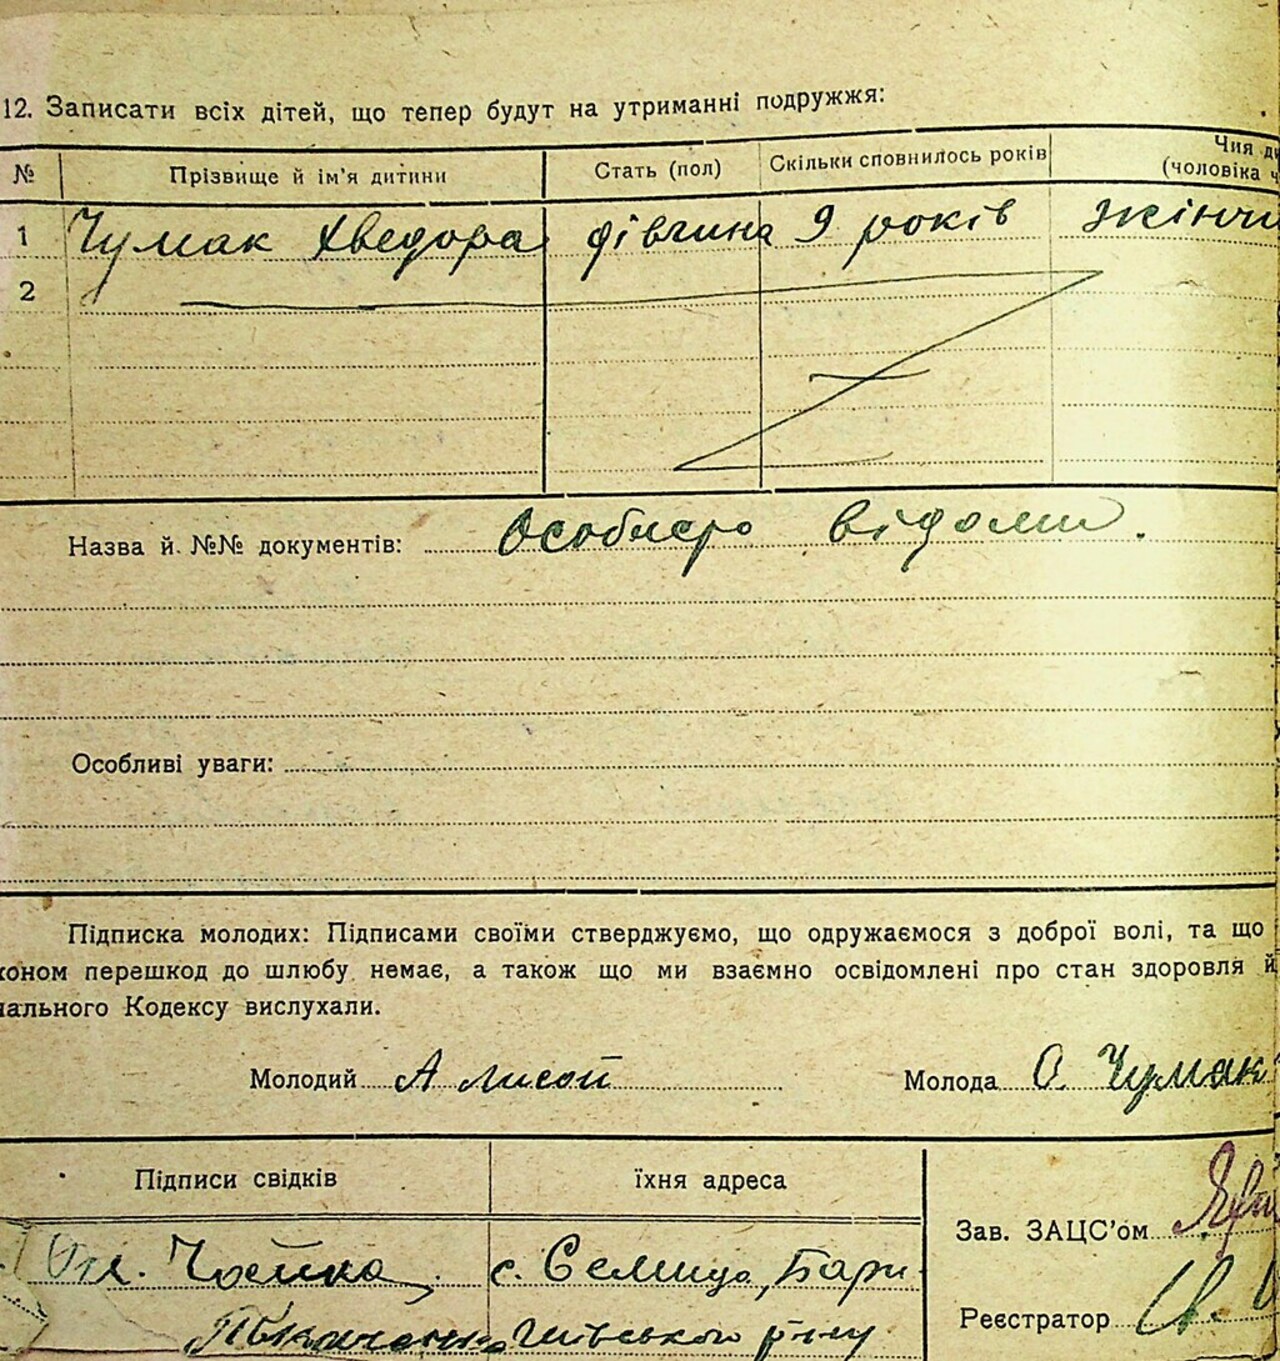 12. Записати всіх дітей, що тепер будут на утриманні подружжя:
№ Прізвище й ім'я дитини Стать (пол) Скільки сповнилось років Чия ди
(чоловіка ч
1 Чумак Хведора дівчина 9 років жіночи
2
Назва й №№ документів: Особисто відоми.
Особливі уваги:
Підписка молодих: Підписами своїми стверджуємо, що одружаємося з доброї волі, та що
коном перешкод до шлюбу немає, а також що ми взаємно освідомлені про стан здоровля й
нального Кодексу вислухали.
Молодий А Лисой Молода О. Чумак
Підписи свідків їхня адреса
Зав. ЗАЦС'ом
Чайка с. Семиця, Бари-
Реєстратор
Ткаченко шівського р-ну